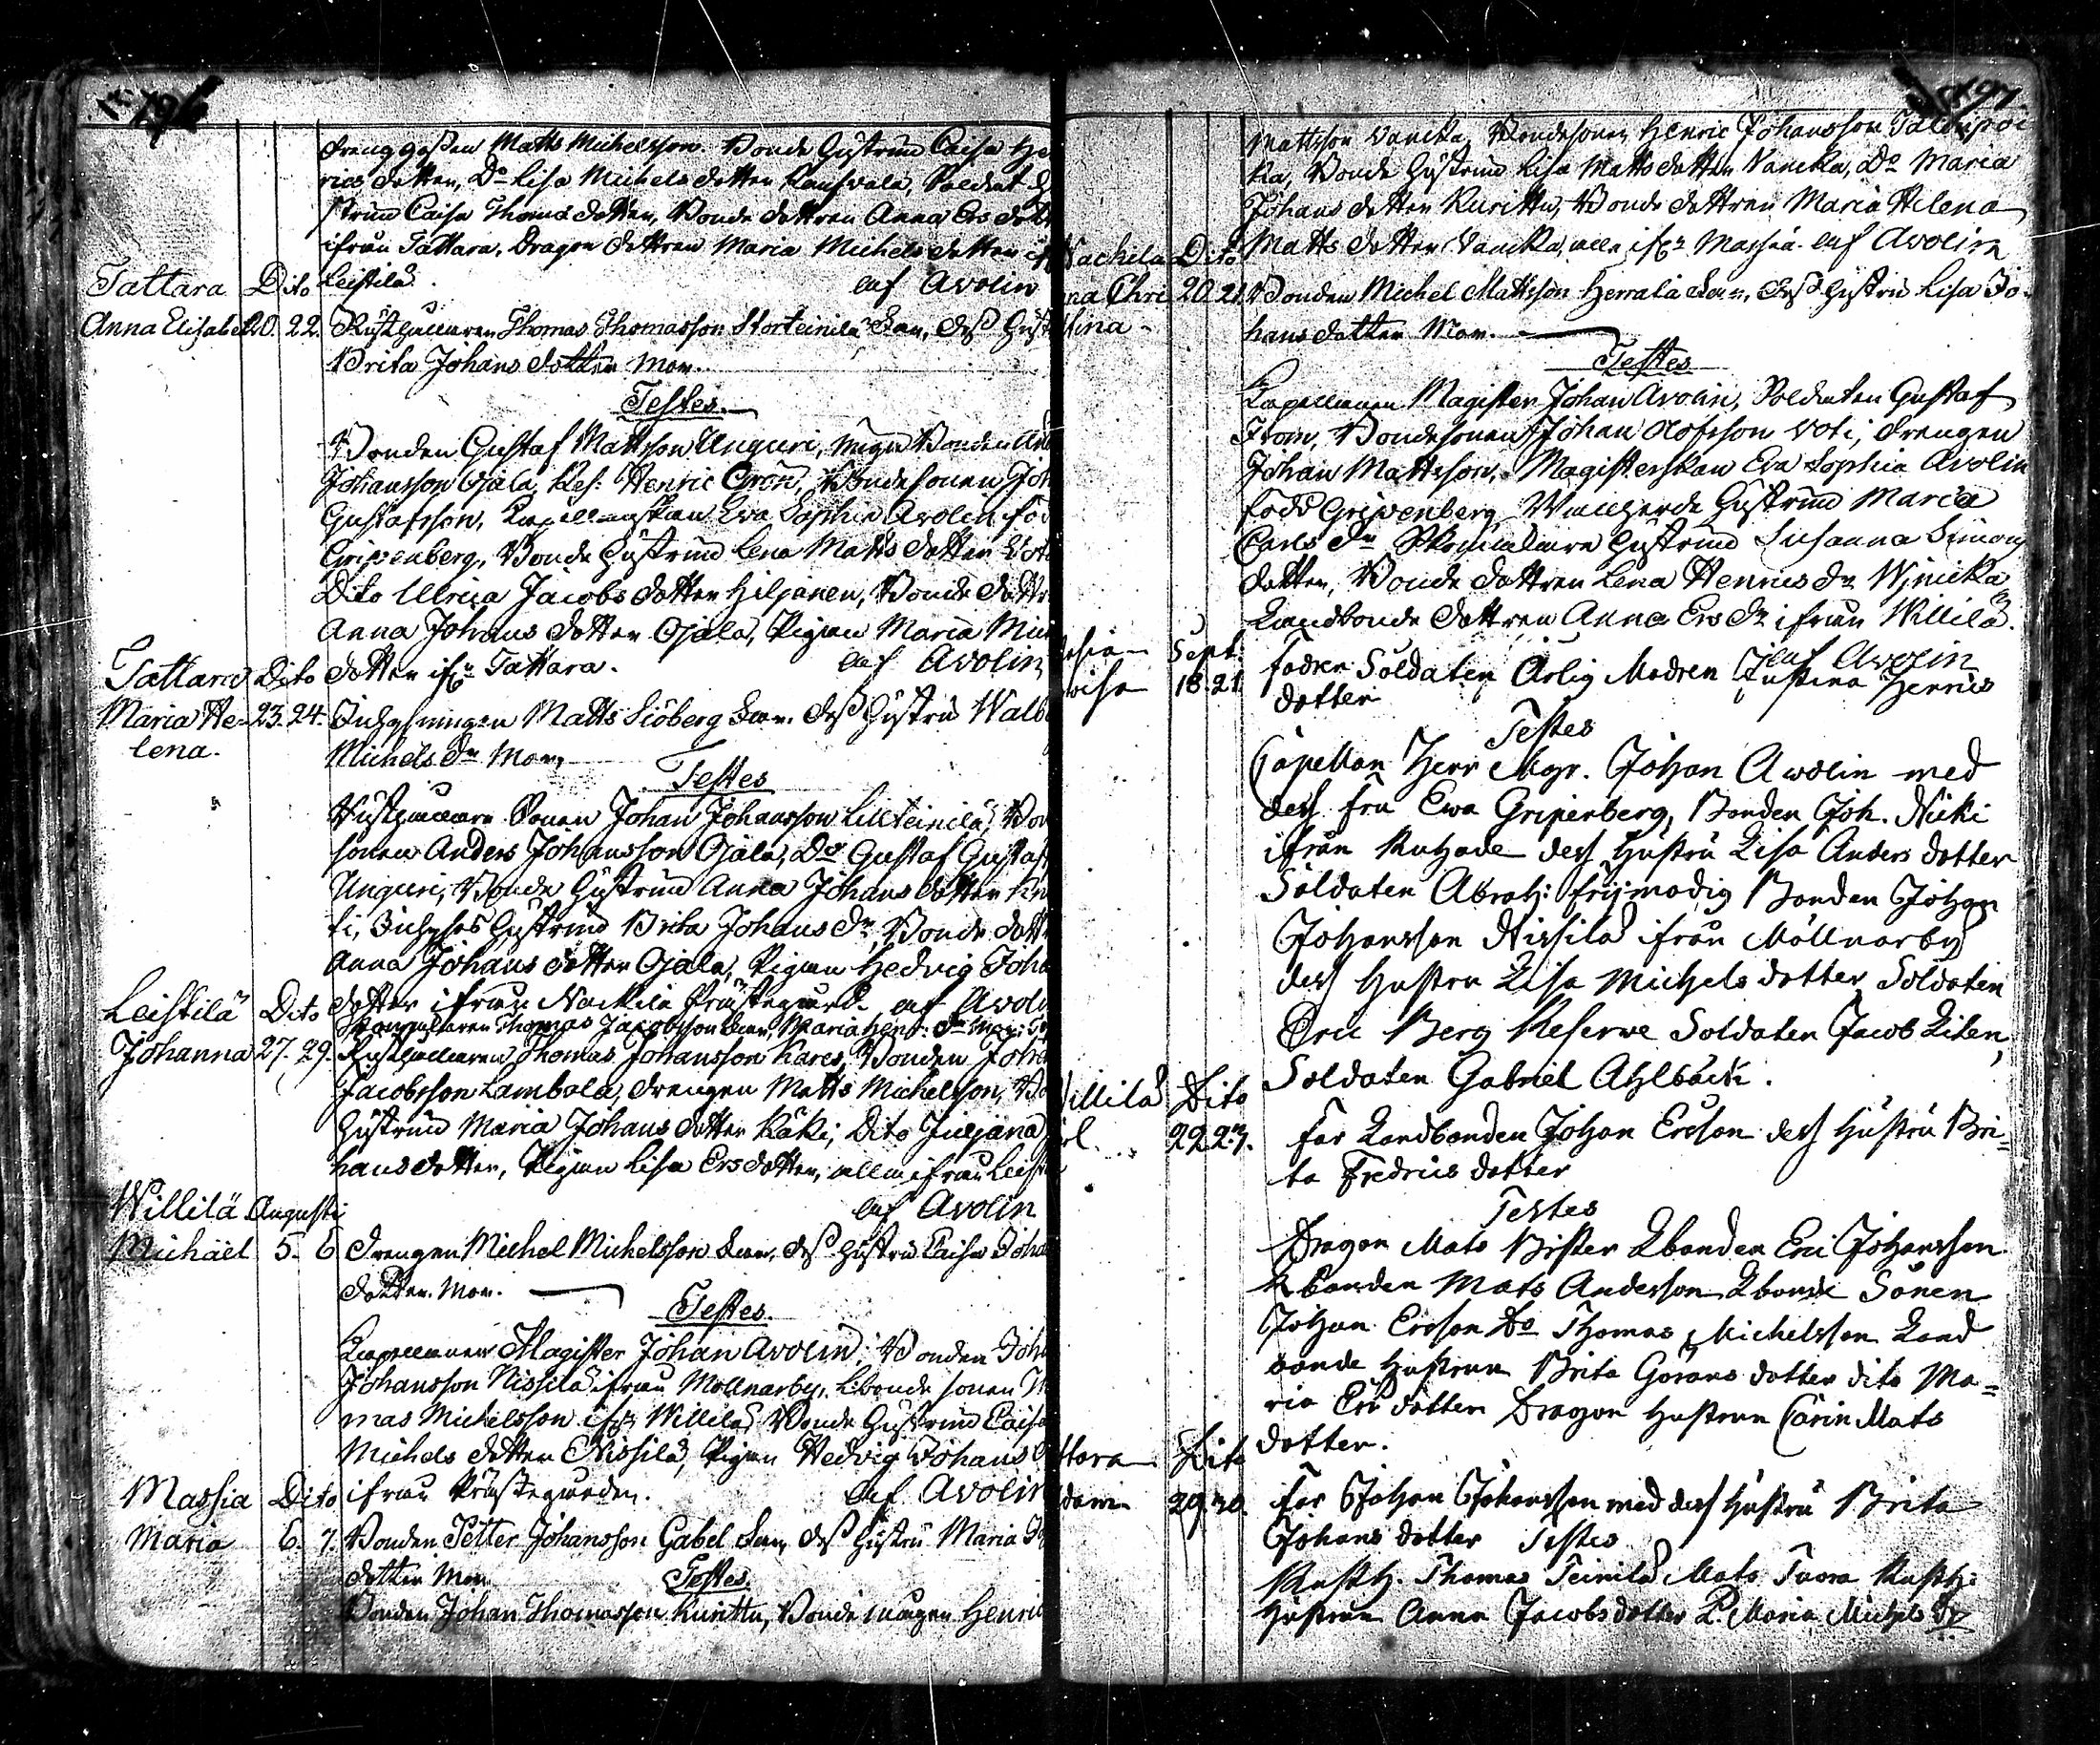 196
dreng gossen Matts Michelsson. Bonde Hustrun Caisa He
rics dotter, Do Lisa Michels dotter Soldat
strun Caisa Thomas dotter, Bonde dottren Anna Ers dott
ifrån Tattara, Dragon dottren Maria Michels dotter
Leistilä. af Avolin
Tattara Dito
Anna Elisabet 20. 22. Rusthållaren Thomas Thomasson Storteinilä Far, dess Hust
Brita Johans dotter Mor.
Testes.
Bonden Gustaf Mattsson Unguri, unga Bonden
Johansson Ojala, Res: Henric Grön, Bondesonen Joh
Gustafsson, Capellanskan Eva Sophia Avolin föd
Gripenberg, Bonde Hustrun Lena Matts dotter
Dito Ulrica Jacobs dotter Hiljanen, Bonde dottr
Anna Johans dotter Ojala, Pigan Maria Mich
Tattara Dito dotter ifr. Tattara. af Avolin
Maria He- 23. 24. Inhysningen Matts Siöberg Far. dess Hustru Walb
lena. Michels Dr Mor,
Testes
Rusthållare Sonen Johan Johansson Lillteinilä, Bon
sonen Anders Johansson Ojala, Do Gustaf Gustaf
Unguri, Bonde Hustrun Anna Johans dotter
ti, Inhyses Hustrun Brita Johans Dr, Bonde dott
Anna Johans dotter Ojala, Pigan Hedvig Joha
Leistilä Dito dotter ifrån Nackila Prästegård. af Avoli
Thomas Jacobsson Far, Maria Henr: Dr Mor:
Johanna 27. 29. Rusthållaren Thomas Johansson Kares, Bonden Joha
Jacobsson Lambola, drengen Matts Michelsson, Bo
Hustrun Maria Johans dotter Käki, Dito Juliana
hans dotter, Pigan Lisa Ers dotter, alla ifrån Leist
Willilä Augusti af Avolin
Michäel 5. 6 Drengen Michel Michelsson Far, dess Hustru Caisa Joha
dotter. Mor.
Testes.
Capellanen Magister Johan Avolin, Bonden Joh
Johansson Nissilä ifrån Mollnarby, Lbonde sonen
mas Michelsson ifr. Willilä, Bonde Hustrun Caisa
Michels dotter Nissilä, Pigan Hedvig Johans
Massia Dito ifrån Prästegården. af Avolin
Maria 6. 7. Bonden Petter Johansson Gabel Far, dess Hustru Maria
dotter Mor Testes.
Bonden Johan Thomasson Kurittu, Bonde mågen Henric
197
Mattsson Vancka, Bondesonen Henric Johansson
ka, Bonde Hustrun Lisa Matts dotter Vancka, Do Maria
Johans dotter Kurittu, Bonde dottren Maria Helena
Nackila Dito Matts dotter Vancka, alla ifr. Massia. af Avolin
na Chri 20. 21. Bonden Michel Mattsson Herrala Far, dess Hustru Lisa Jo-
stina - hans dotter Mor.
Testes
Capellanen Magister Johan Avolin, Soldaten Gustaf
From, Bondesonen Johan Olofsson Voti, drengen
Johan Mattsson, Magisterskan Eva Sophia Avolin
född Gripenberg, Hustrun Maria
Carls Dr Hustrun Susanna Simons
dotter, Bonde dottren Lena Henrics Dr
Landbonde dottren Anna Ers Dr ifrån Willilä.
af Avolin
Sept. fadren Soldaten Ärlig Modren Justina Henrics
18. 21 dotter
Testes
Capellan Herr Mgr. Johan Awolin med
dess fru Ewa Gripenberg, Bonden Joh. Nicki
ifrån dess hustru Lisa Anders dotter
Soldaten Abrah: frijmodig Bonden Johan
Johansson Nissilä ifrån Mollnarby
dess hustru Lisa Michels dotter Soldaten
Eric Berg Reserve Soldaten Jacob Liten,
Willilä Dito Soldaten Gabriel Ahlbäck.
rl. 22 23. far Landbonden Johan Ericson dess hustru Bri-
ta Fredrics dotter
Testes
Dragon Mats Bister Lbonden Eric Johansson
Lbonden Mats Andersson Lbonde Sonen
Johan Ericson Do Thomas Michelsson Land
bonde hustrun Brita Görans dotter dito Ma=
ria Eric dotter Dragon hustrun Carin Mats
ttara Dito dotter.
dam 29. 30. far Johan Johansson med dess hustru Brita
Johans dotter Testes
Rusth. Thomas Teinilä Mats Tuora Rusth:
hustrun Anna Jacobs dotter P. Maria Michels Dr